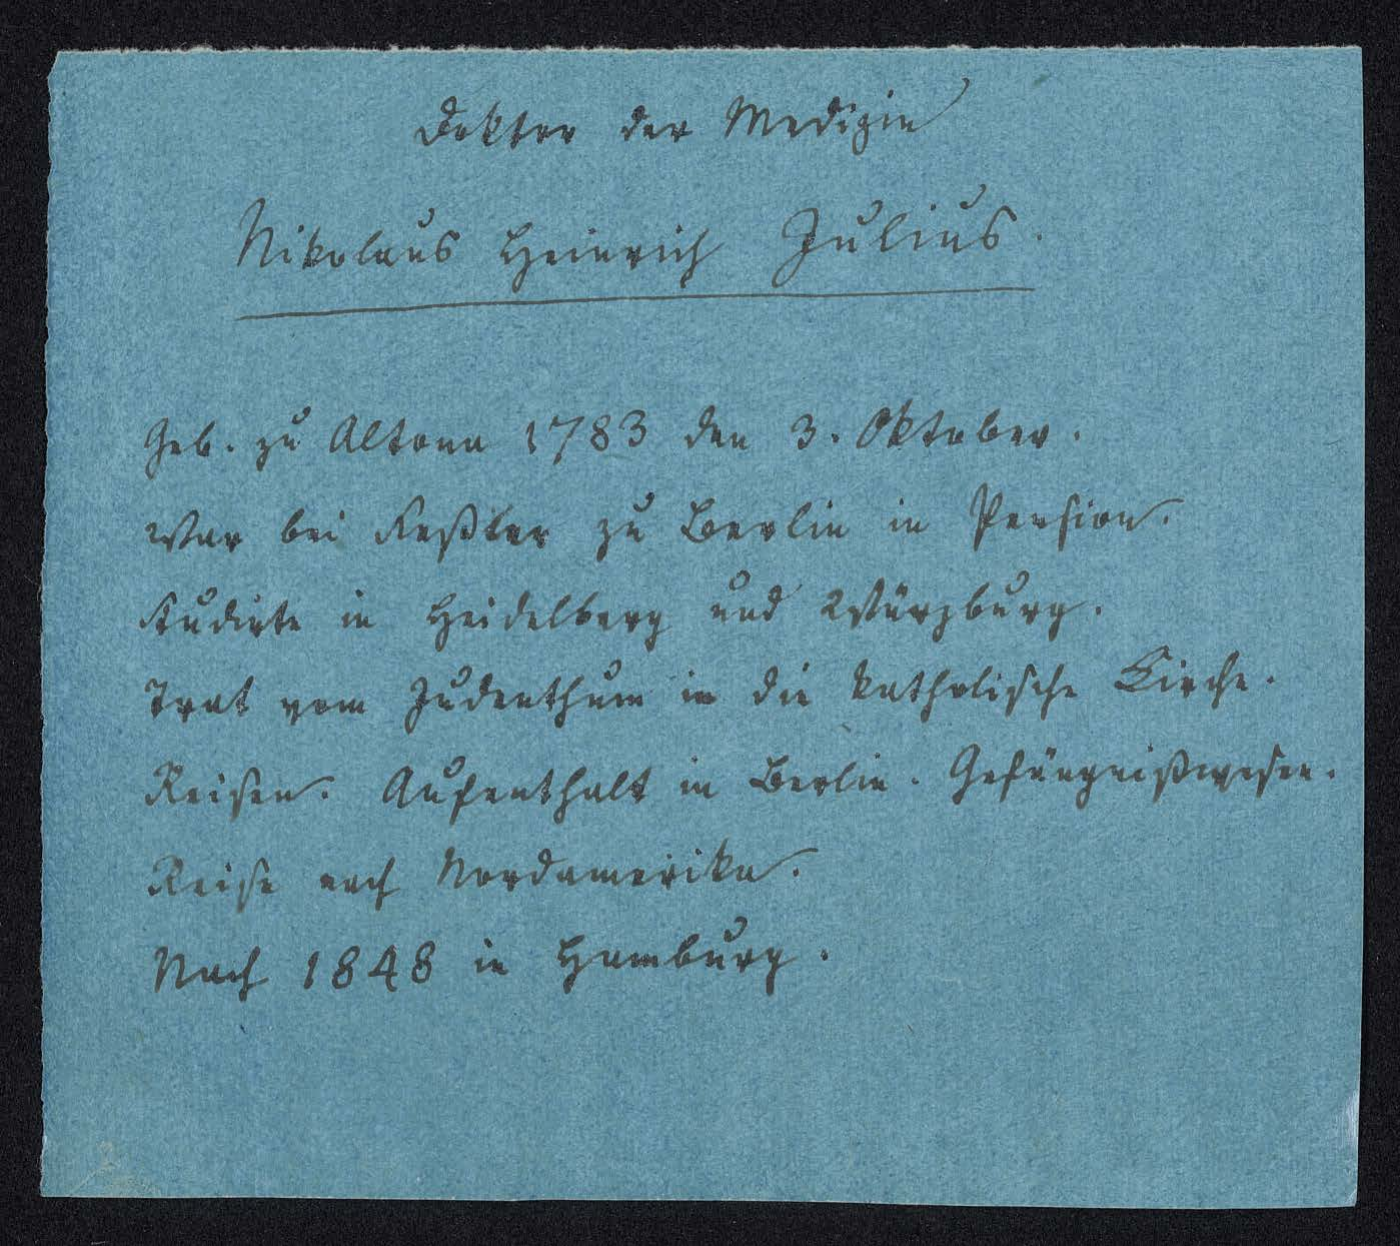 Doktor der Medizin
Nikolaus Heinrich Julius.
Geb. zu Altona 1783 den 3. Oktober.
War bei Keßler zu Berlin in Pension.
Studirte in Heidelberg und Würzburg.
Trat vom Judenthum in die katholische Kirche.
Reisen. Aufenthalt in Berlin. Gefängnißwesen.
Reise nach Nordamerika.
Nach 1848 in Hamburg.